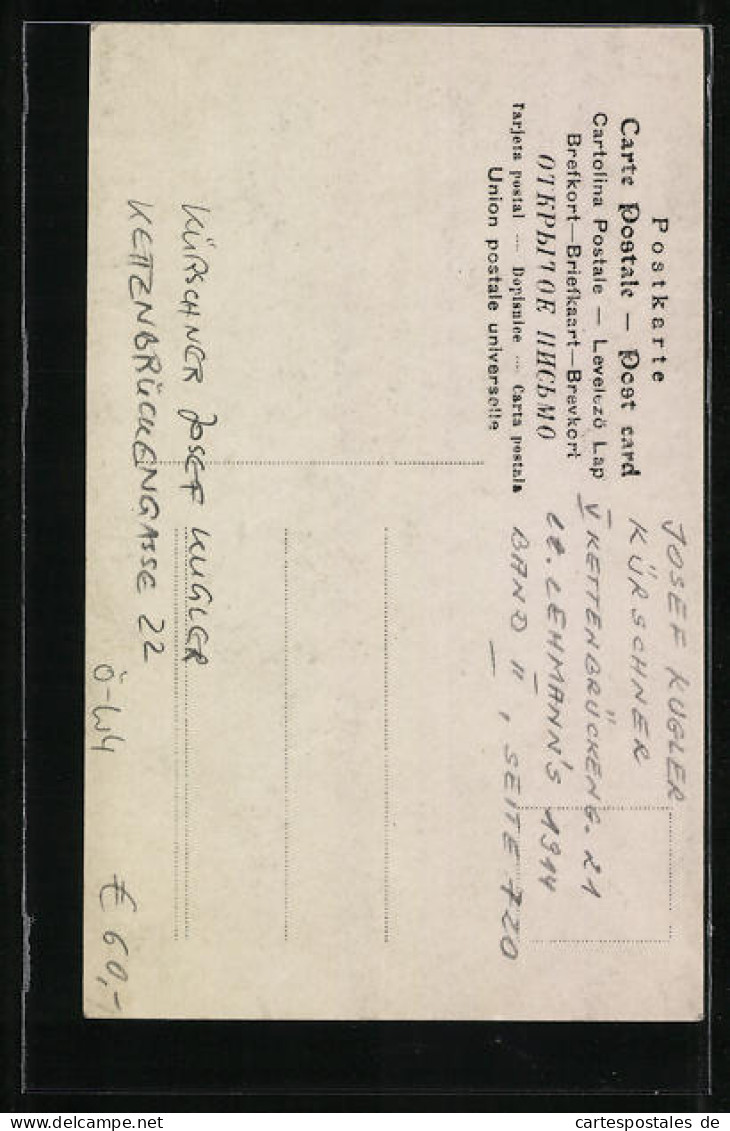 Postkarte
Carte Postale — Post card
Cartolina Postale — Levelező Lap
Brefkort—Briefkaart—Brevkort
ОТКРЫТОЕ ПИСЬМО
Tarjeta postal — Dopisnice — Carta postala
Union postale universelle
JOSEF KUGLER
KÜRSCHNER
V KETTENBRÜCKENG. 21
lt. LEHMANN'S 1914
BAND II, SEITE 720
KÜRSCHNER JOSEF KUGLER
KETTENBRÜCKENGASSE 22
Ö-W4
€ 60,-
cartespostales de